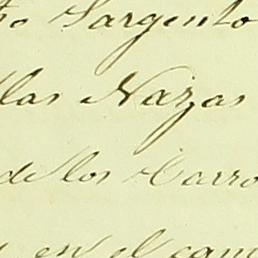 to Sargento
las Nazas
de los Carro
y en el cam